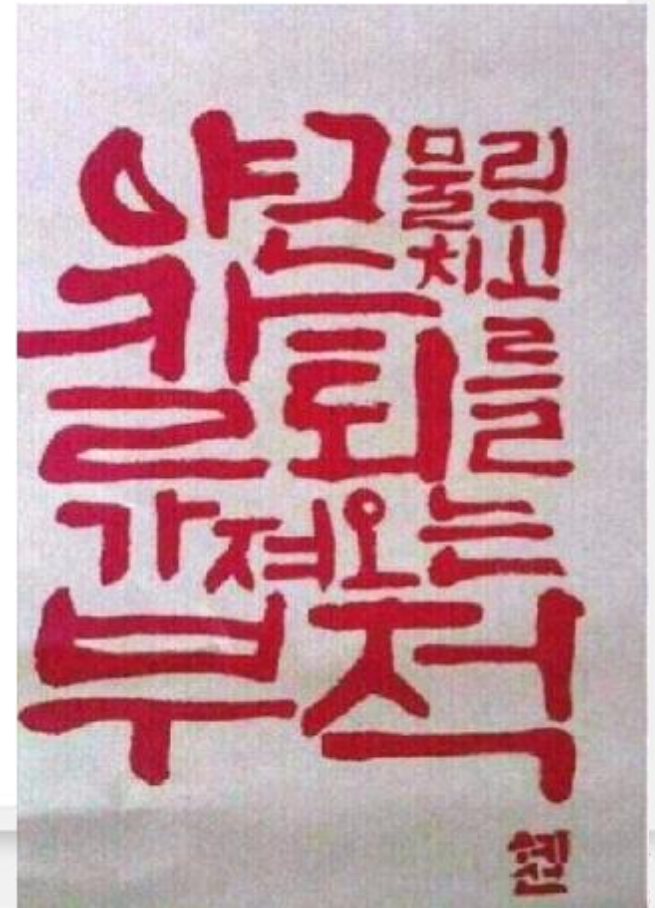 야근 물리치고
칼퇴를
가져오는
부적